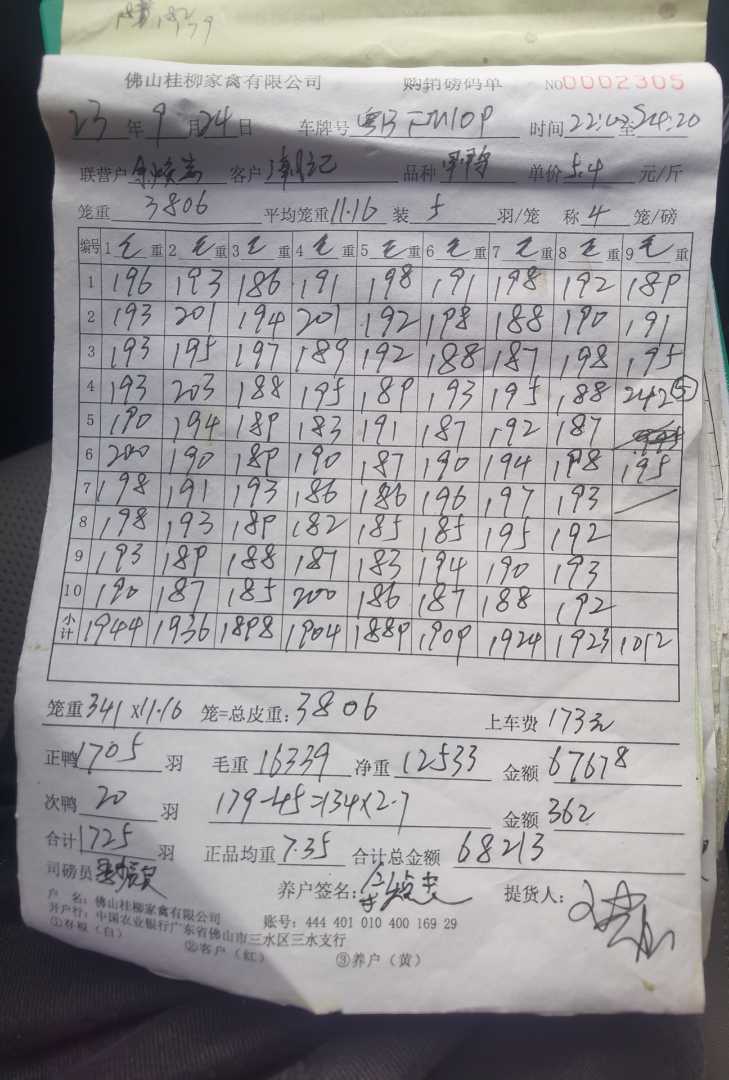 佛山桂柳家禽有限公司 购销磅码单 NO0002305
23年9月24日 车牌号 时间22:
联营户 客户 品种 单价5.4元/斤
笼重3806 平均笼重11.16 装5羽/笼 称4笼/磅
编号 1毛重 2毛重 3毛重 4毛重 5毛重 6毛重 7毛重 8毛重 9毛重
1 196 193 186 191 198 191 198 192 189
2 193 201 194 201 192 198 188 190 191
3 193 195 197 189 192 188 187 198 195
4 193 203 188 195 189 193 195 188 242⑤
5 190 194 189 183 191 187 192 187
6 200 190 189 190 187 190 194 198 195
7 198 191 193 186 186 196 197 193
8 198 193 189 182 185 185 195 192
9 193 189 188 187 183 194 190 193
10 190 187 185 200 186 187 188 192
小计 1944 1936 1898 1904 1889 1909 1924 1923 1012
笼重341×11.16 笼=总皮重:3806 上车费173元
正鸭1705羽 毛重16339 净重12533 金额67678
次鸭20羽 179-45=134×2.7 金额362
合计1725羽 正品均重7.35 合计总金额68213
司磅员 养户签名: 提货人:
户 名:佛山桂柳家禽有限公司 账号:444 401 010 400 169 29
开户行:中国农业银行广东省佛山市三水区三水支行
①存根(白) ②客户(红) ③养户(黄)